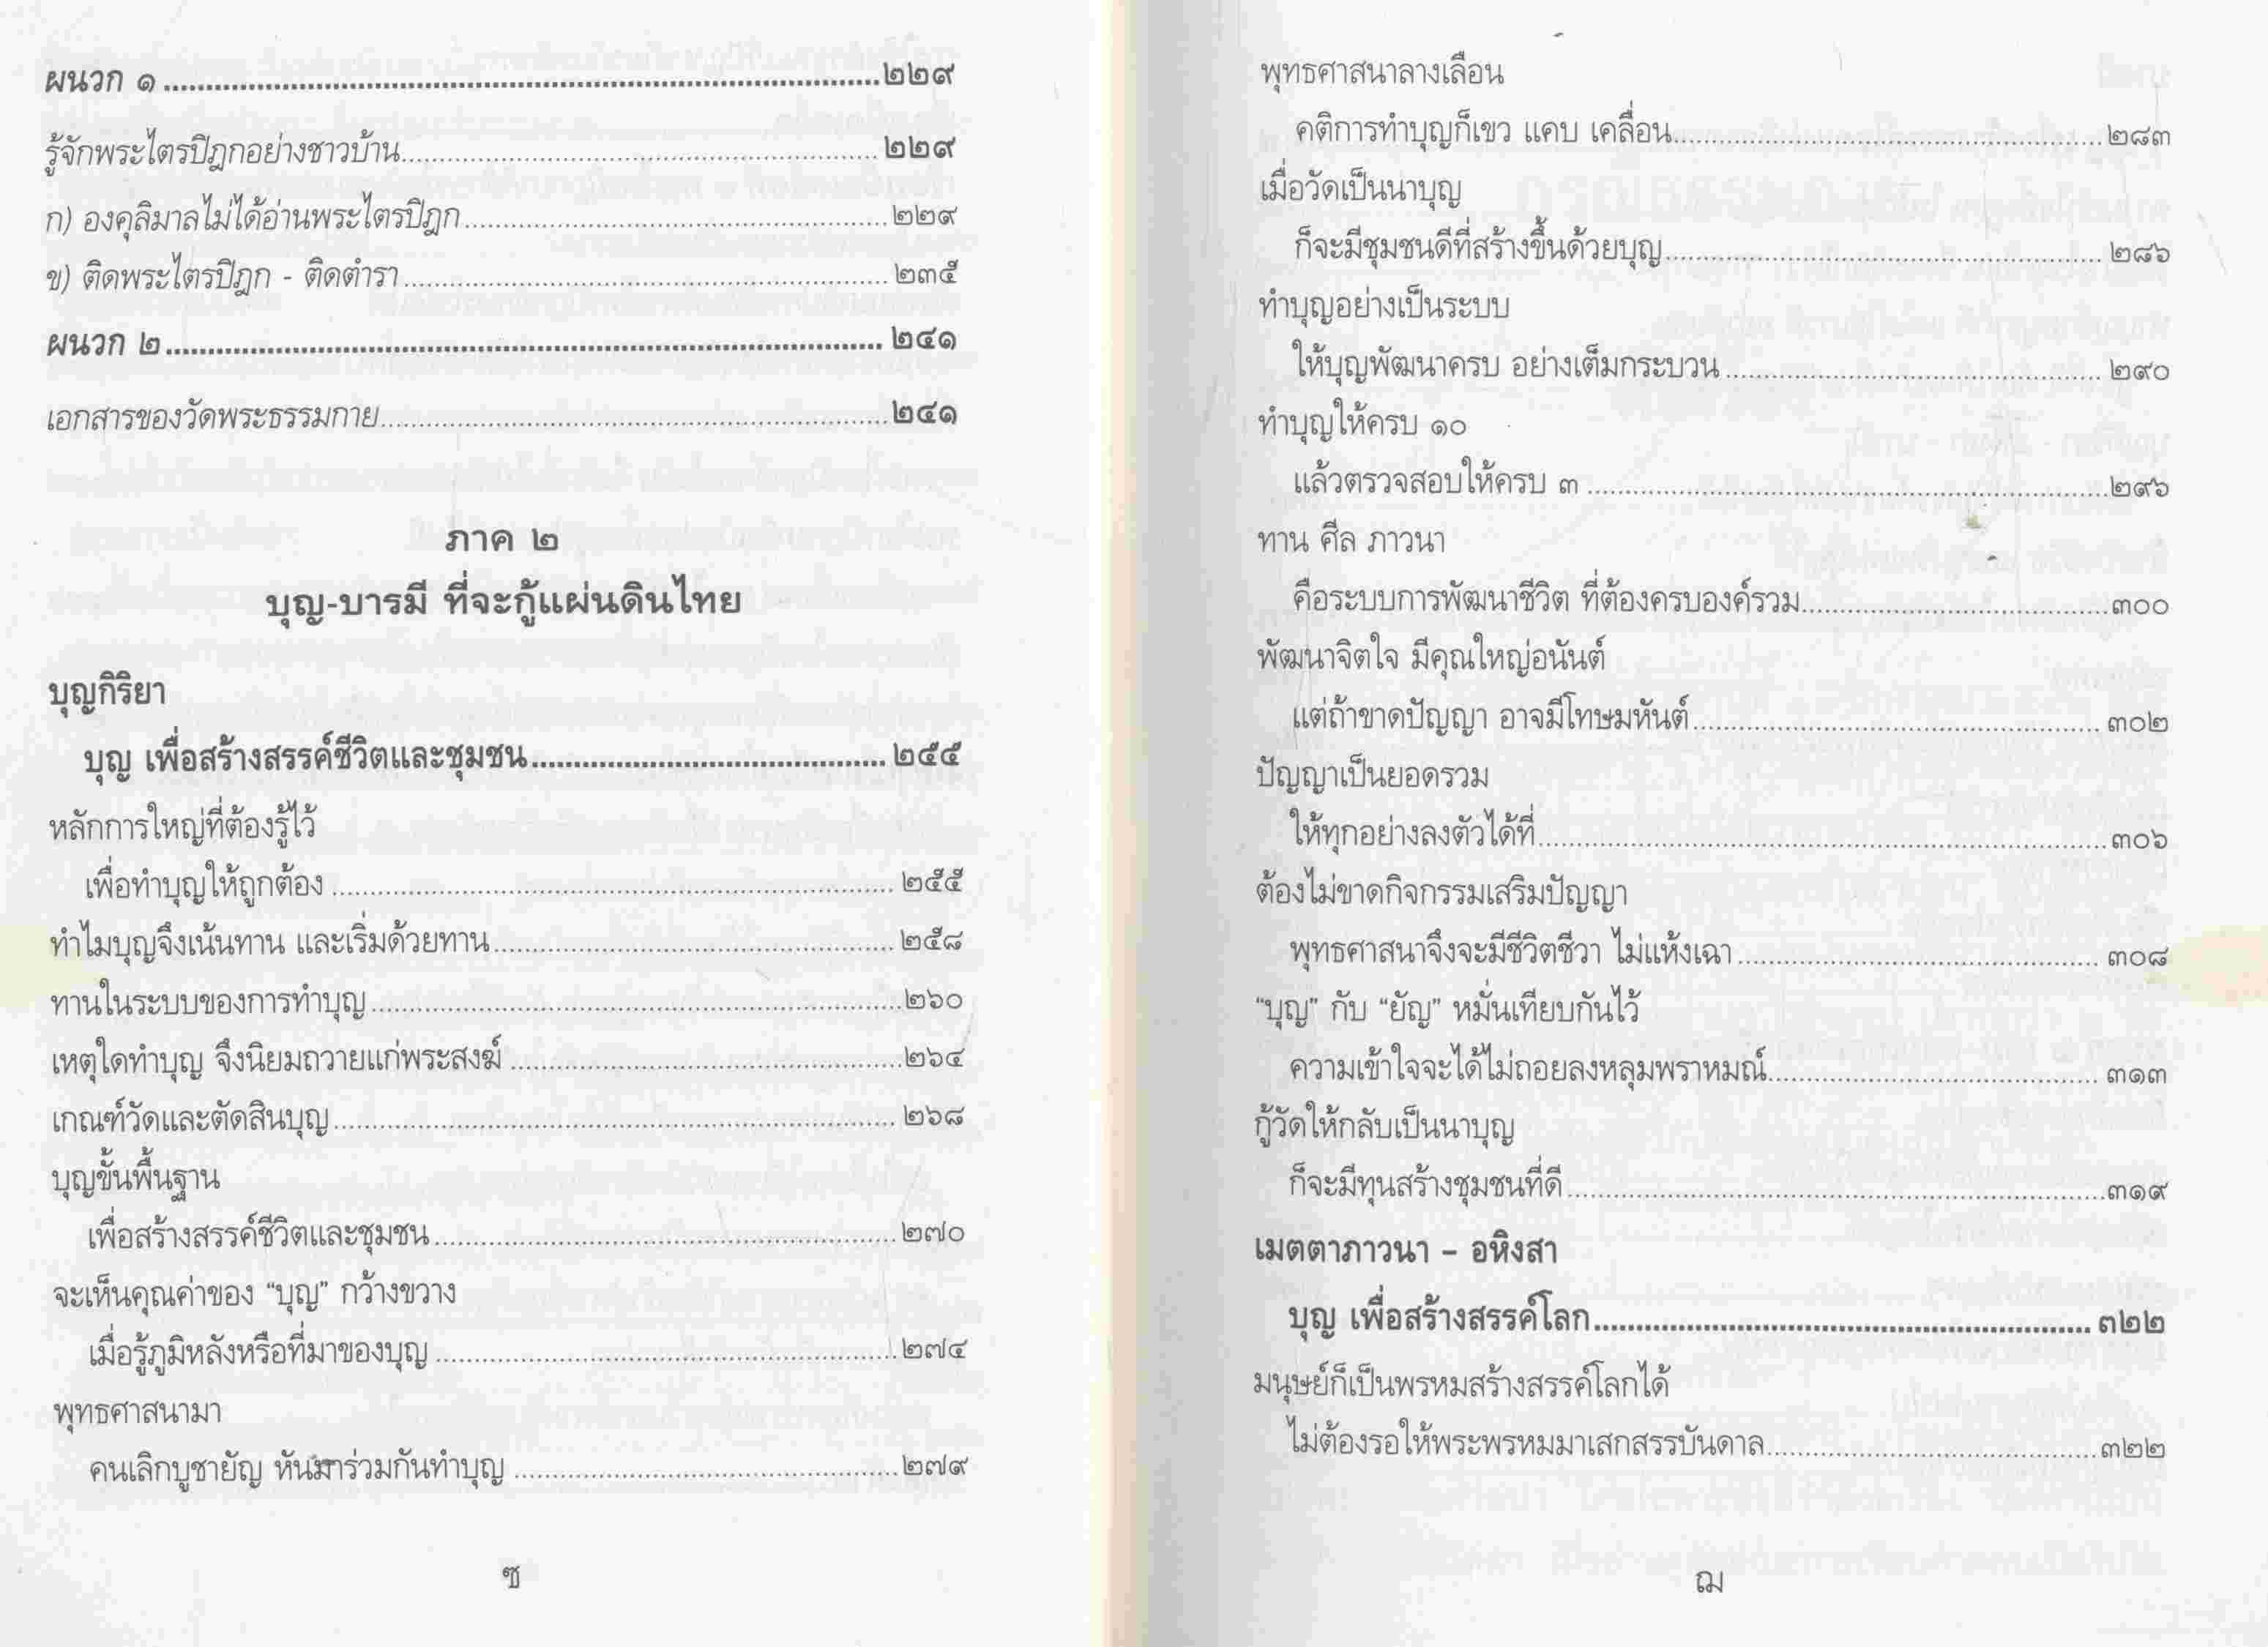 ผนวก ๑ ........ ๒๒๙
รู้จักพระไตรปิฎกอย่างชาวบ้าน........ ๒๒๙
ก) องคุลิมาลไม่ได้อ่านพระไตรปิฎก........ ๒๒๙
ข) ติดพระไตรปิฎก - ติดตำรา........ ๒๓๕
ผนวก ๒........ ๒๔๑
เอกสารของวัดพระธรรมกาย........ ๒๔๑
ภาค ๒
บุญ-บารมี ที่จะกู้แผ่นดินไทย
บุญกิริยา
บุญ เพื่อสร้างสรรค์ชีวิตและชุมชน........ ๒๕๕
หลักการใหญ่ที่ต้องรู้ไว้
เพื่อทำบุญให้ถูกต้อง ........ ๒๕๕
ทำไมบุญจึงเน้นทาน และเริ่มด้วยทาน........ ๒๕๘
ทานในระบบของการทำบุญ ........ ๒๖๐
เหตุใดทำบุญ จึงนิยมถวายแก่พระสงฆ์ ........ ๒๖๔
เกณฑ์วัดและตัดสินบุญ........ ๒๖๘
บุญขั้นพื้นฐาน
เพื่อสร้างสรรค์ชีวิตและชุมชน........ ๒๗๐
จะเห็นคุณค่าของ “บุญ” กว้างขวาง
เมื่อรู้ภูมิหลังหรือที่มาของบุญ ........ ๒๗๔
พุทธศาสนามา
คนเลิกบูชายัญ หันมาร่วมกันทำบุญ ........ ๒๗๙
ซ
พุทธศาสนาลางเลือน
คติการทำบุญก็เขว แคบ เคลื่อน........ ๒๘๓
เมื่อวัดเป็นนาบุญ
ก็จะมีชุมชนดีที่สร้างขึ้นด้วยบุญ........ ๒๘๖
ทำบุญอย่างเป็นระบบ
ให้บุญพัฒนาครบ อย่างเต็มกระบวน ........ ๒๙๐
ทำบุญให้ครบ ๑๐
แล้วตรวจสอบให้ครบ ๓ ........ ๒๙๖
ทาน ศีล ภาวนา
คือระบบการพัฒนาชีวิต ที่ต้องครบองค์รวม........ ๓๐๐
พัฒนาจิตใจ มีคุณใหญ่อนันต์
แต่ถ้าขาดปัญญา อาจมีโทษมหันต์........ ๓๐๒
ปัญญาเป็นยอดรวม
ให้ทุกอย่างลงตัวได้ที่........ ๓๐๖
ต้องไม่ขาดกิจกรรมเสริมปัญญา
พุทธศาสนาจึงจะมีชีวิตชีวา ไม่แห้งเฉา ........ ๓๐๘
“บุญ” กับ “ยัญ” หมั่นเทียบกันไว้
ความเข้าใจจะได้ไม่ถอยลงหลุมพราหมณ์........ ๓๑๓
กู้วัดให้กลับเป็นนาบุญ
ก็จะมีทุนสร้างชุมชนที่ดี........ ๓๑๙
เมตตาภาวนา – อหิงสา
บุญ เพื่อสร้างสรรค์โลก........ ๓๒๒
มนุษย์ก็เป็นพรหมสร้างสรรค์โลกได้
ไม่ต้องรอให้พระพรหมมาเสกสรรบันดาล........ ๓๒๒
ฌ